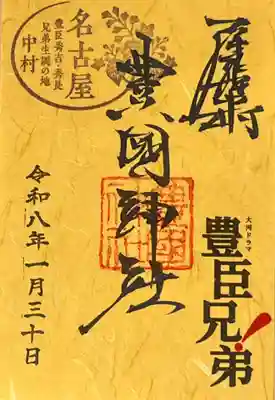 奉拝
豊國神社
大河ドラマ
豊臣兄弟!
名古屋
豊臣秀吉・秀長
兄弟生誕の地
中村
令和八年一月三十日